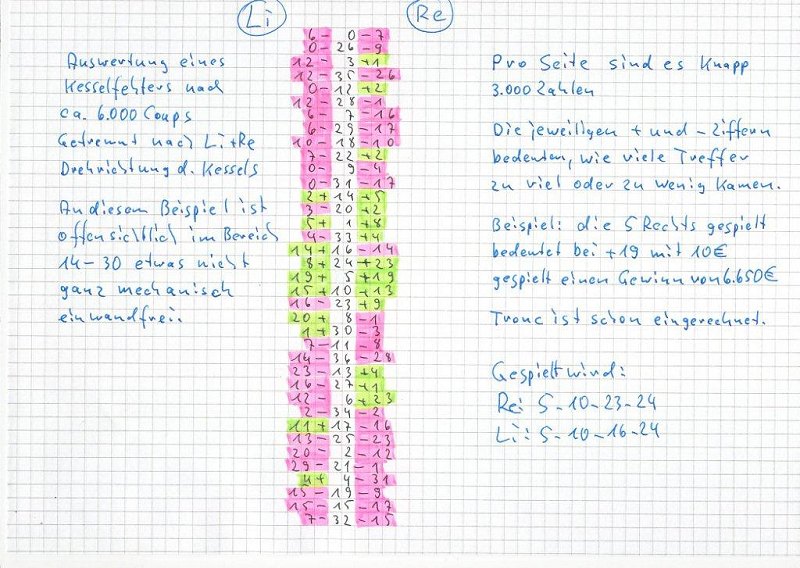 Li Re
6 - 0 - 7
0 - 26 - 9
12 - 3 +1
12 - 35 - 26
0 - 12 +2
12 - 28 - 1
6 - 7 - 16
6 - 29 - 17
10 - 18 - 10
7 - 22 +2
0 - 9 - 4
0 - 31 - 17
2 + 14 +5
3 - 20 +2
5 + 1 +8
4 - 33 +4
14 + 16 - 14
8 + 24 +23
19 + 5 +19
15 + 10 +13
16 - 23 +9
20 + 8 - 1
1 + 30 - 3
7 - 11 - 8
14 - 36 - 28
23 - 13 +4
16 - 27 +1
12 - 6 +23
2 - 34 - 2
11 + 17 - 16
13 - 25 - 23
20 - 2 - 12
29 - 21 - 1
4 + 4 - 31
15 - 19 - 9
15 - 15 - 17
7 - 32 - 15
Auswertung eines
Kesselfehlers nach
ca. 6.000 Coups
Getrennt nach Li+Re
Drehrichtung d. Kessels
An diesem Beispiel ist
offensichtlich im Bereich
14-30 etwas nicht
ganz mechanisch
einwandfrei.
Pro Seite sind es knapp
3.000 Zahlen
Die jeweiligen + und - Ziffern
bedeuten, wie viele Treffer
zu viel oder zu wenig kamen.
Beispiel: die 5 Rechts gespielt
bedeutet bei +19 mit 10€
gespielt einen Gewinn von 6.650€
Tronc ist schon eingerechnet.
Gespielt wird:
Re: 5-10-23-24
Li: 5-10-16-24